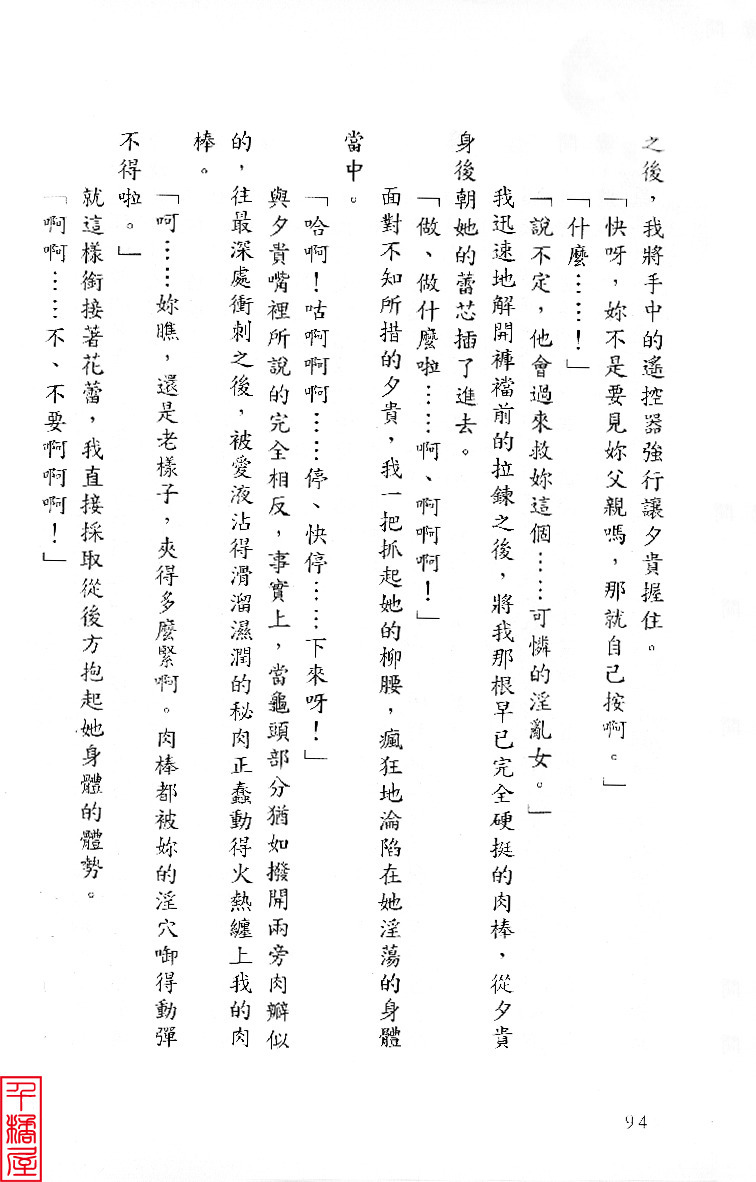 之後，我將手中的遙控器強行讓夕貴握住。
「快呀，妳不是要見妳父親嗎，那就自己按啊。」
「什麼……！」
「說不定，他會過來救妳這個……可憐的淫亂女。」
我迅速地解開褲襠前的拉鍊之後，將我那根早已完全硬挺的肉棒、從夕貴
身後朝她的蕾芯插了進去。
「做、做什麼啦……啊、啊啊啊！」
面對不知所措的夕貴，我一把抓起她的柳腰，瘋狂地淪陷在她淫蕩的身體
當中。
「哈啊！咕啊啊啊……停、快停……下來呀！」
與夕貴嘴裡所說的完全相反，事實上，當龜頭部分猶如撥開兩旁肉瓣似
的，往最深處衝刺之後，被愛液沾得滑溜濕潤的秘肉正蠢動得火熱纏上我的肉
棒。
「呵……妳瞧，還是老樣子，夾得多麼緊啊。肉棒都被妳的淫穴啣得動彈
不得啦。」
就這樣銜接著花蕾，我直接採取從後方抱起她身體的體勢。
「啊啊……不、不要啊啊啊！」
94
千橘屋